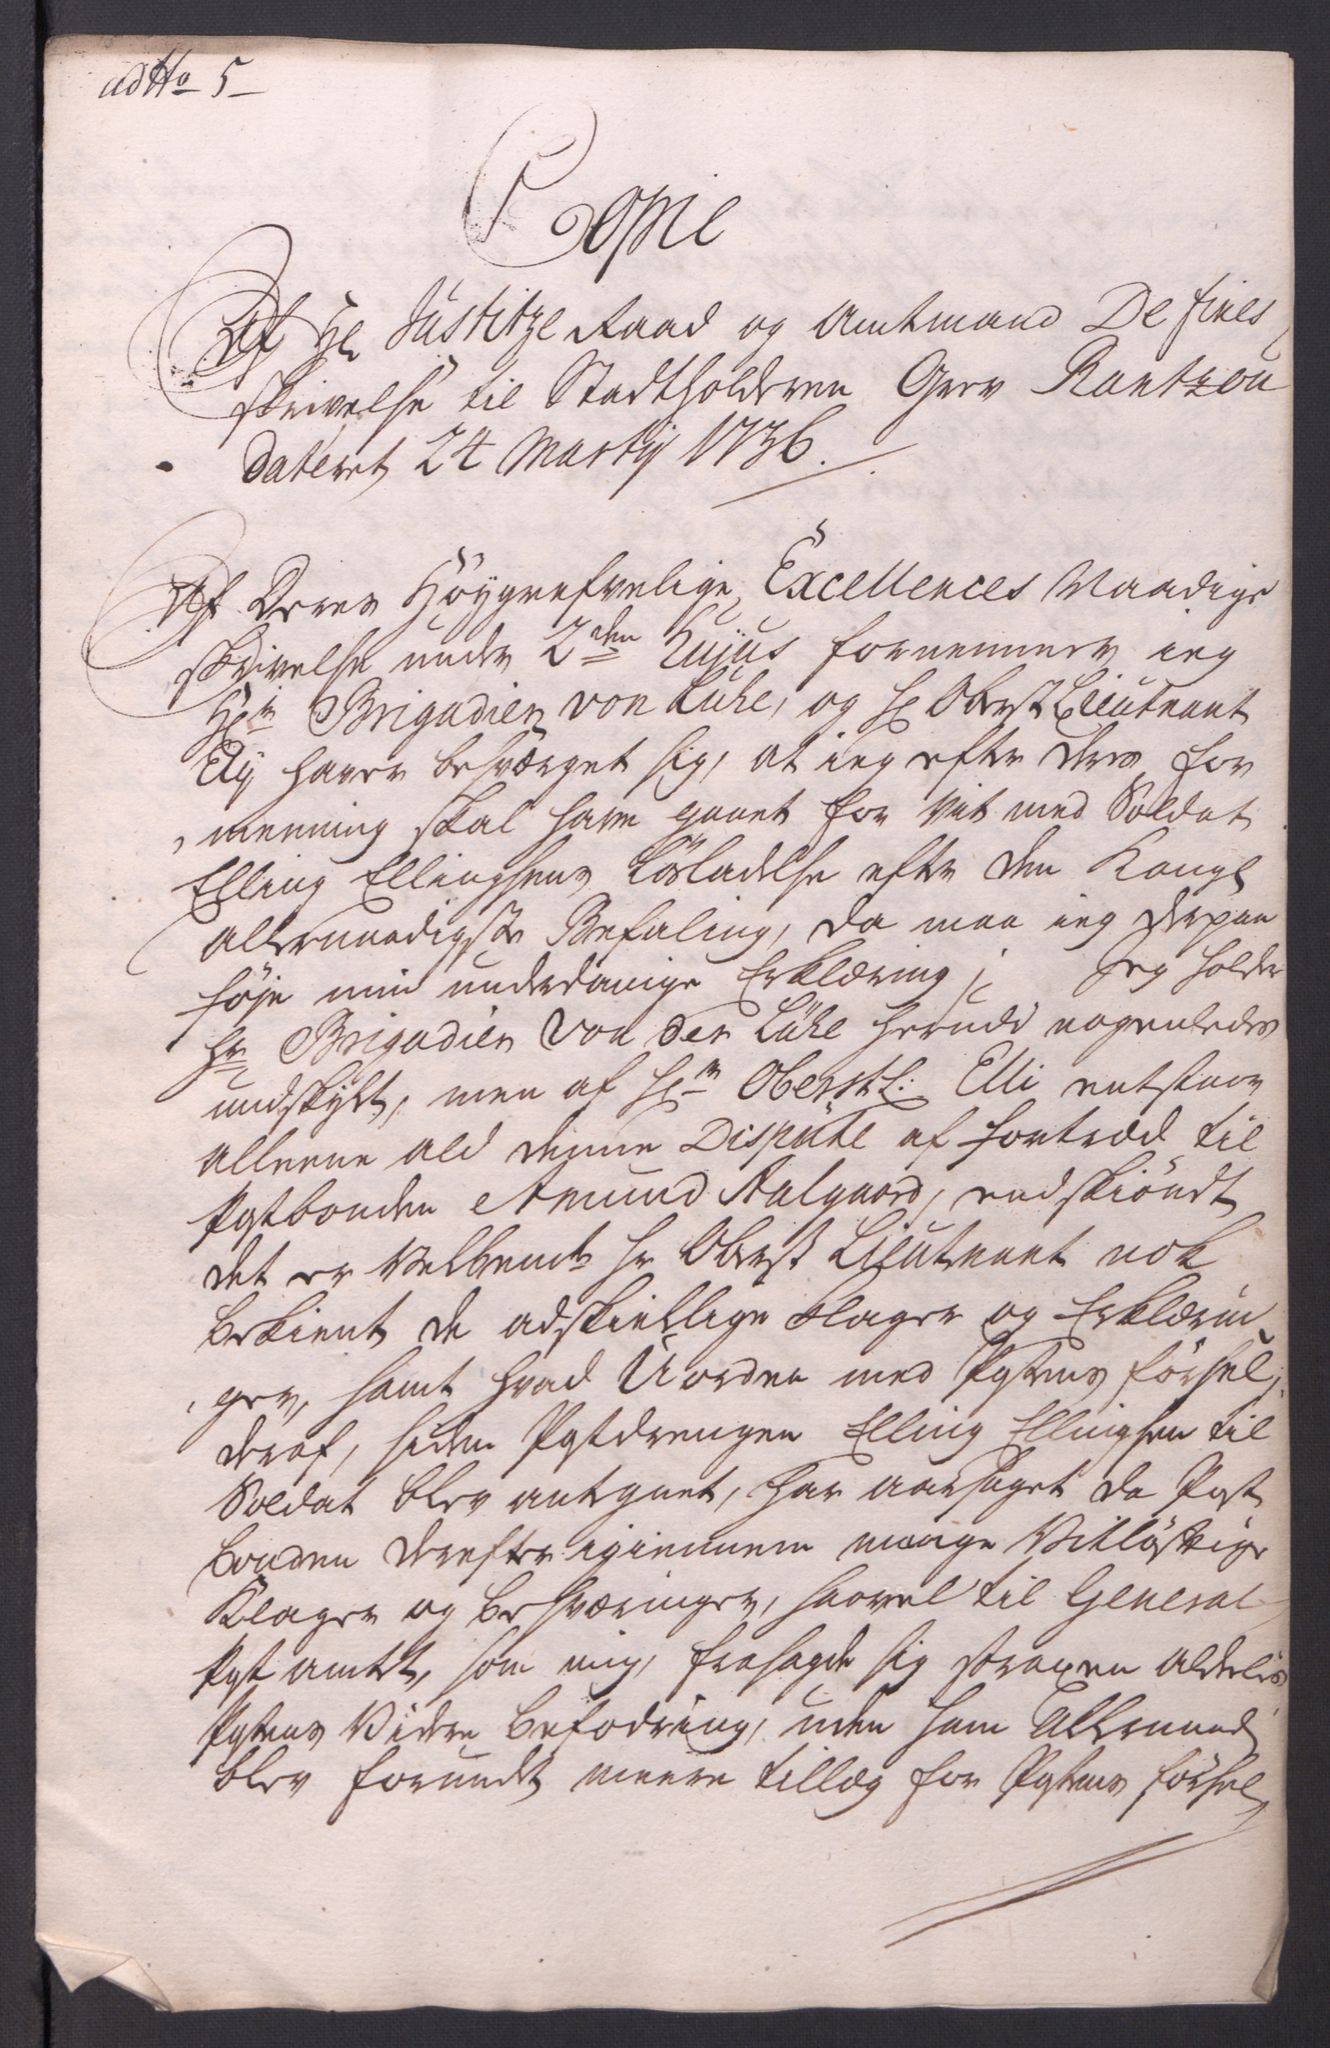 ad No 5
Copie
Af Hr Justitze Raad og Amtmand De fines
skrivelse til Stadtholderen Grev Rantzou
dateret 24 Martij 1736.
Af Deres Höygrefvelige Excellences Naadige
skrivelse under 2den Hujus fornemmer ieg
Hrn Brigadier von Lühe, og Hr Oberst Lieutnant
Ely haver besværget sig, at ieg efter deres for
menning skal have gaaet for vit med Soldat
Elling Ellingsens Lösladelse efter den Kongl
allernaadigste Befaling, da maa ieg derpaa
föje min underdanige Erklæring; Jeg holder
Hr Brigadier Von der Lühe herudi nogenledes
undskylt, men af Hrn Oberstl: Elli entstaar
alleene ald denne Dispüte af fortræd til
Postbonden Amund Aalgaard, endskiöndt
det er Velbemte Hr Oberst Lieutnant nok
bekient de adskiellige klager og Erklærin
ger, samt hvad Uorden med Postens försel,
deraf, siden Postdrengen Elling Ellingsen til
Soldat blev antegnet, har aarsaget da Post
bonden derefter igiennem mange Vitlöftige
Klager og besværinger, saavel til General
Post amtet, som mig, frasagde sig straxen aldeelis
Postens Videre befodring, uden ham Allernaad
blev forundt meere tillæg for Postens försel,